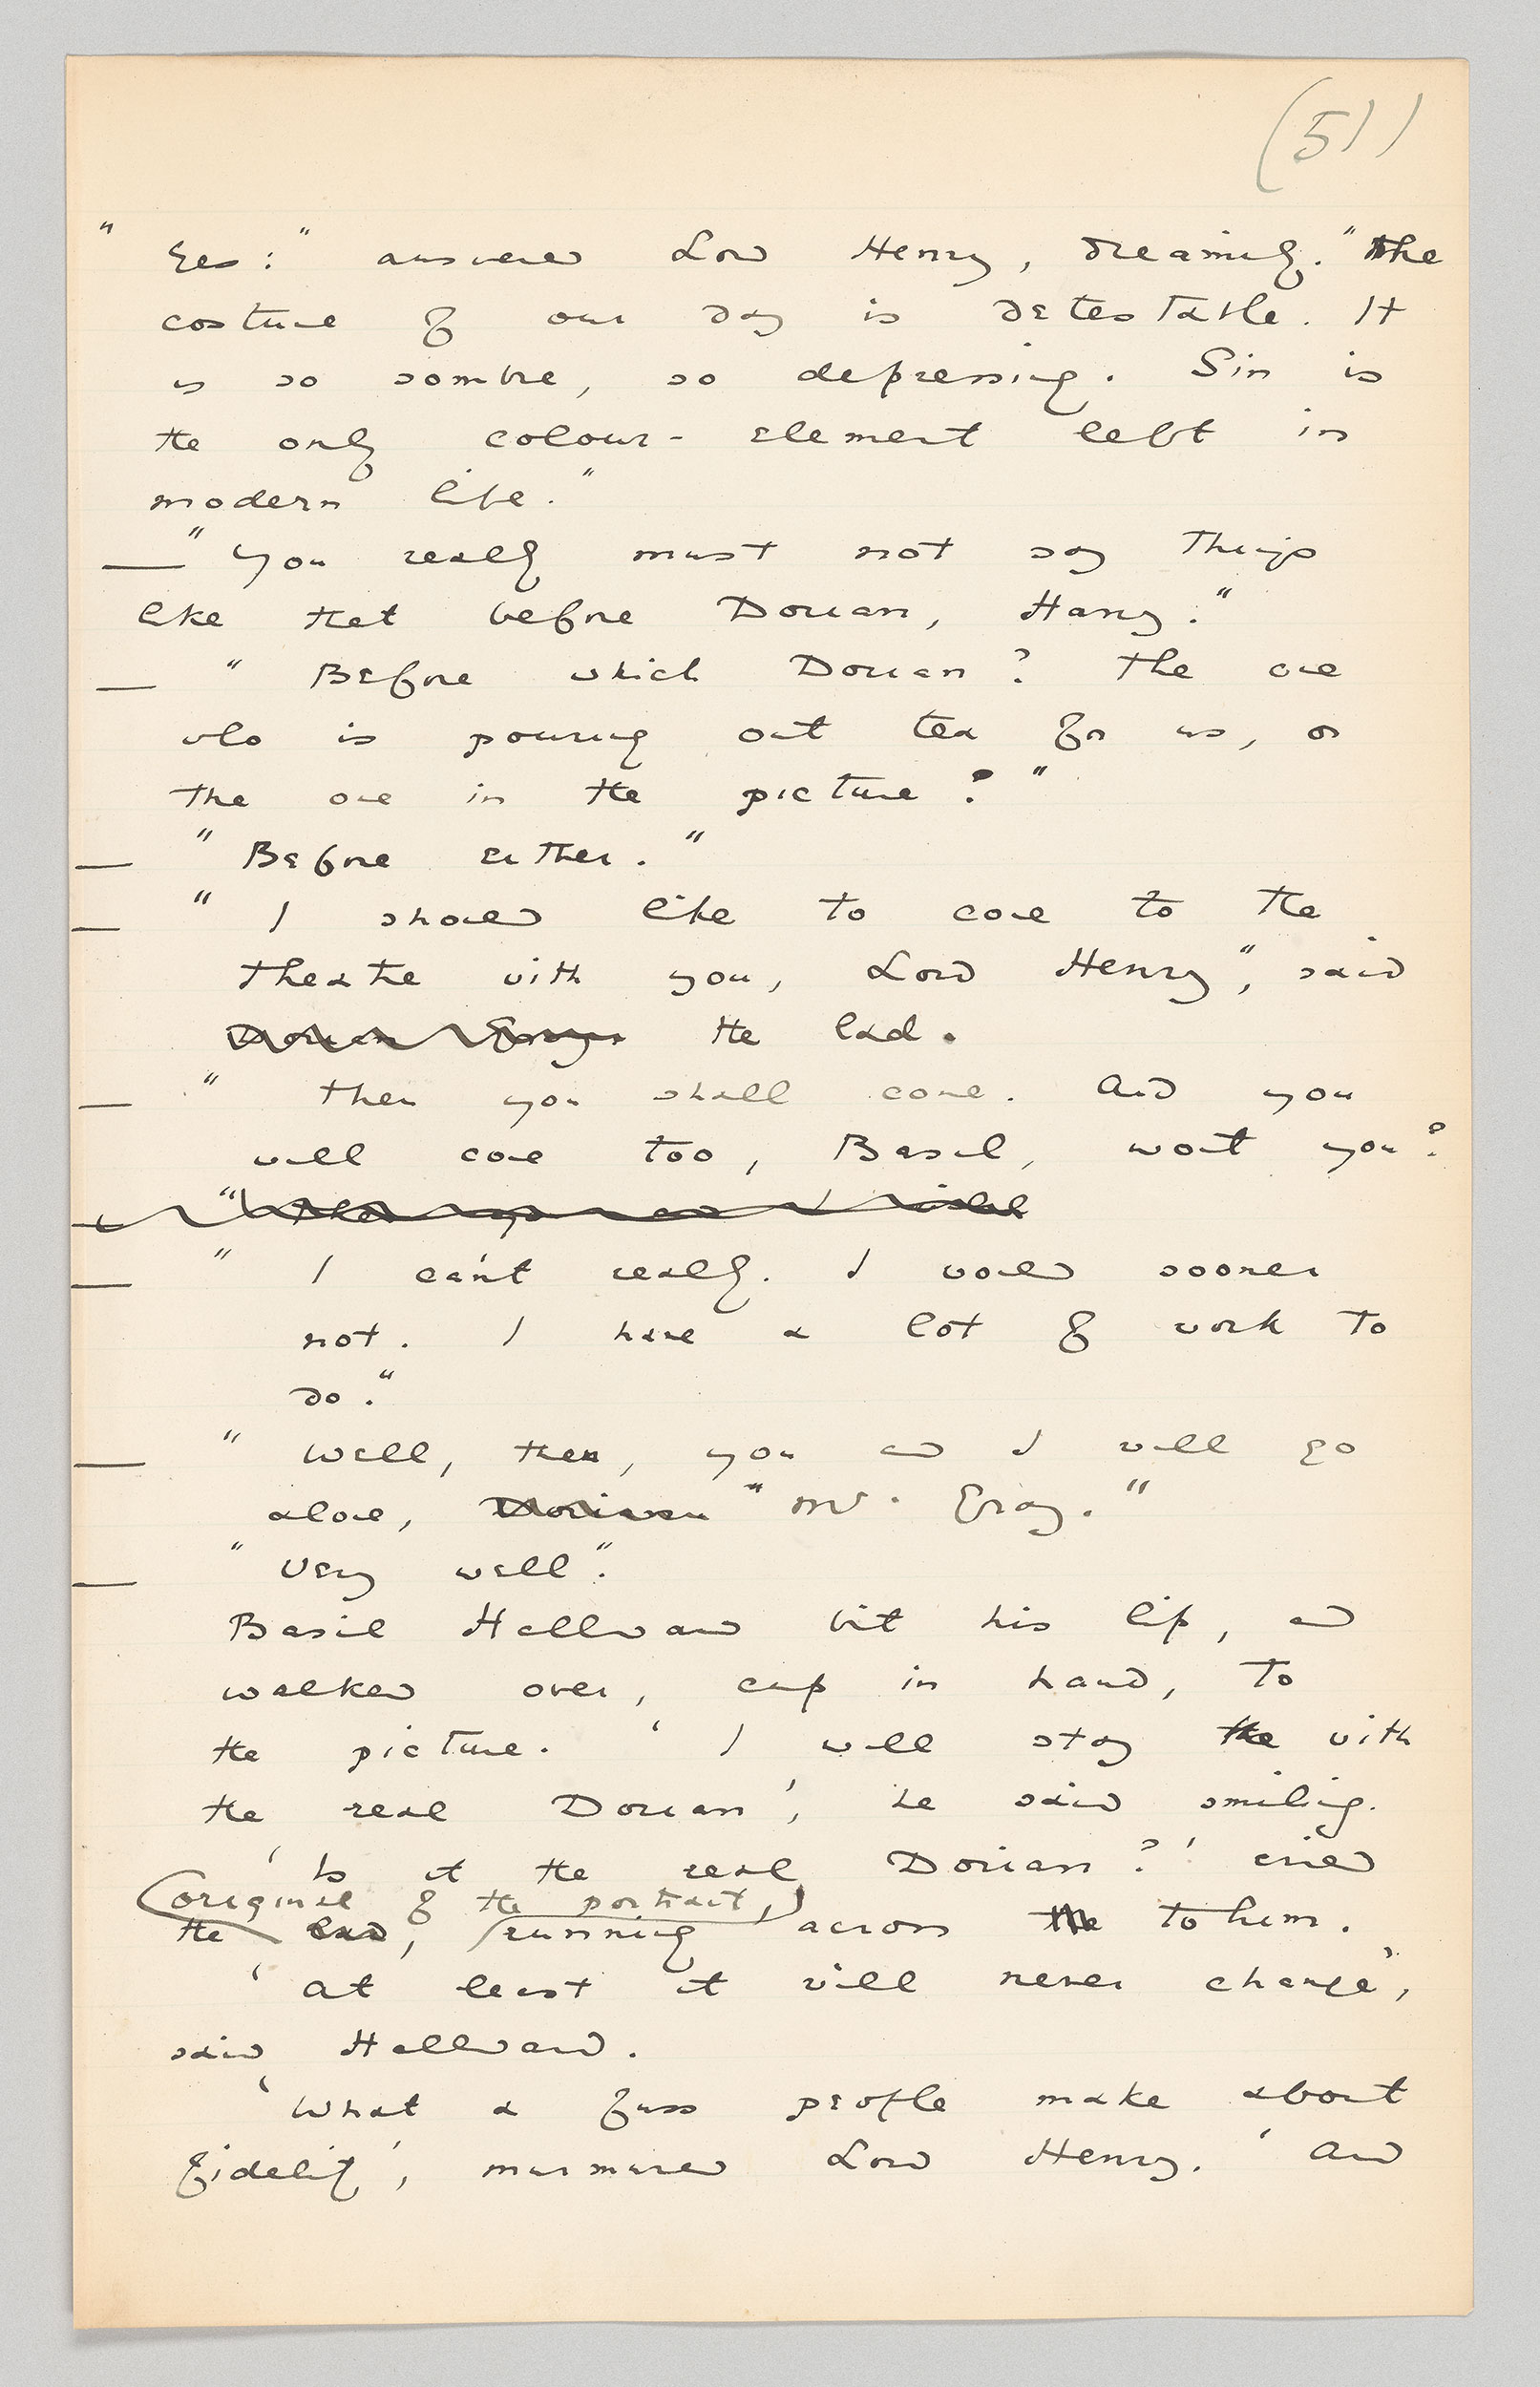 (51)
" Yes:" answered Lord Henry, dreamily. "the
costume of our day is detestable. It
is so sombre, so depressing. Sin is
the only colour-element left in
modern life."
— "You really must not say things
like that before Dorian, Harry."
— "Before which Dorian? The one
who is pouring out tea for us, or
the one in the picture?"
— "Before either."
— "I should like to come to the
theatre with you, Lord Henry", said
Dorian Gray the lad.
— "Then you shall come. And you
will come too, Basil, wont you?
— "
— "I can't really. I would sooner
not. I have a lot of work to
do."
— "Well, then, you and I will go
alone, Dorian " Mr. Gray."
— "Very well".
Basil Hallward bit his lip, and
walked over, cup in hand, to
the picture. 'I will stay the with
the real Dorian', he said smiling.
'Is it the real Dorian?' cried
original of the portrait,
the lad, running across the to him.
'At least it will never change',
said Hallward.
'What a fuss people make about
fidelity', murmured Lord Henry. 'And